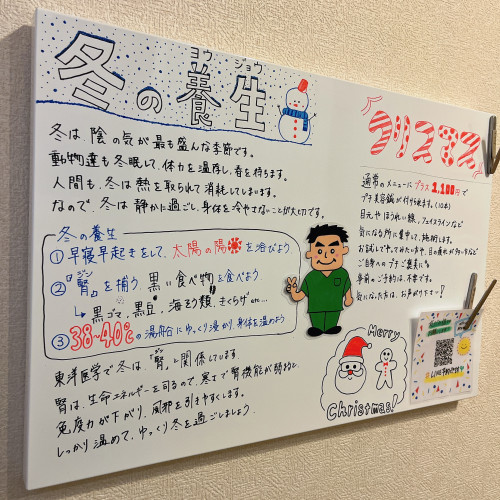 ヨウ ジョウ
冬の養生
冬は、陰の気が最も盛んな季節です。
動物達も冬眠して、体力を温存し、春を待ちます。
人間も、冬は熱を取られて消耗してしまいます。
なので、冬は静かに過ごし、身体を冷やさないことが大切です。
冬の養生
①早寝早起きをして、太陽の陽を浴びよう
ジン
②『腎』を補う、黒い食べ物を食べよう
↳黒ゴマ、黒豆、海そう類、きくらげ etc...
③38~40℃の湯船にゆっくり浸かり、身体を温めよう
ジン
東洋医学で冬は、『腎』と関係しています。
腎は、生命エネルギーを司るので、寒さで腎機能が弱ると、
免疫力が下がり、風邪を引きやすくします。
しっかり温めて、ゆっくり冬を過ごしましょう。
クリスマス
通常のメニューにプラス1,100円で
プチ美容鍼が付けられます。(10本)
目元やほうれい線、フェイスラインなど
気になる所に集中して、施術します。
お試しでやってみたい方や、目の疲れが
ご自身へのプチご褒美に
事前のご予約は、不要です。
気になった方は、お声がけ下さい!
Merry
Christmas!